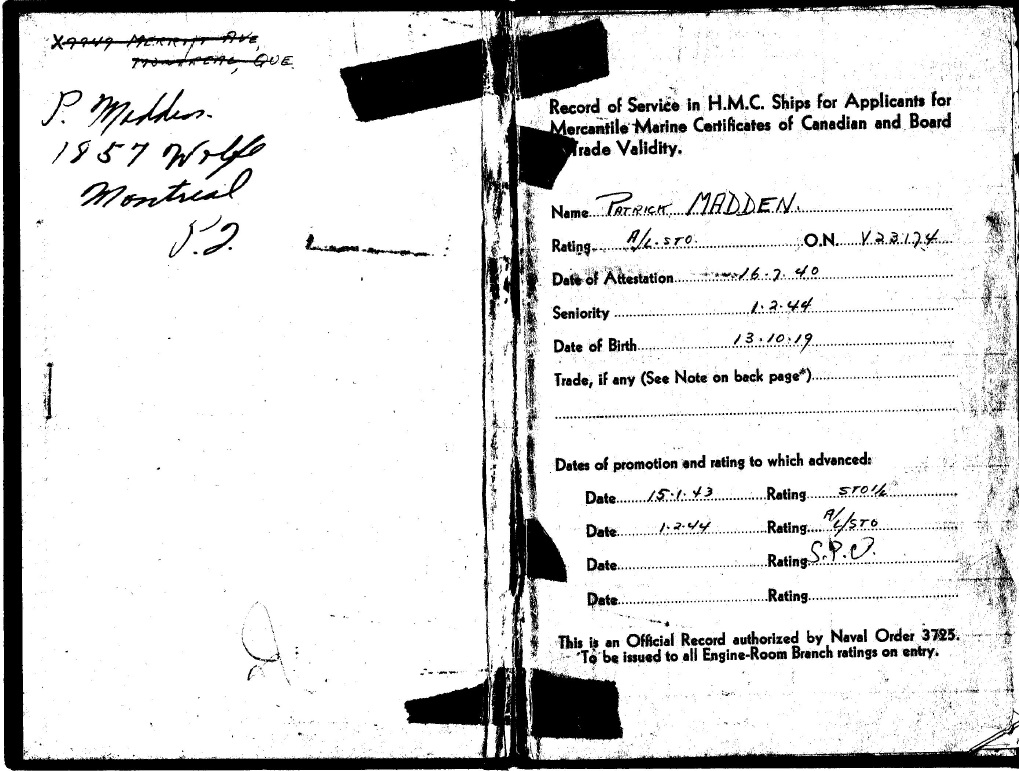 X9949 MERRITT AVE,
MONTREAL, QUE
P. Madden.
1857 Wolfe
Montreal
P.Q.
Record of Service in H.M.C. Ships for Applicants for
Mercantile Marine Certificates of Canadian and Board
Trade Validity.
Name PATRICK MADDEN.
Rating A/L. STO. O.N. V23174
Date of Attestation 16.7.40
Seniority 1.2.44
Date of Birth 13.10.19
Trade, if any (See Note on back page*)
Dates of promotion and rating to which advanced:
Date 15.1.43 Rating STO 1/c
Date 1.2.44 Rating A/L/STO
Date Rating S.P.O.
Date Rating
This is an Official Record authorized by Naval Order 3725.
To be issued to all Engine-Room Branch ratings on entry.